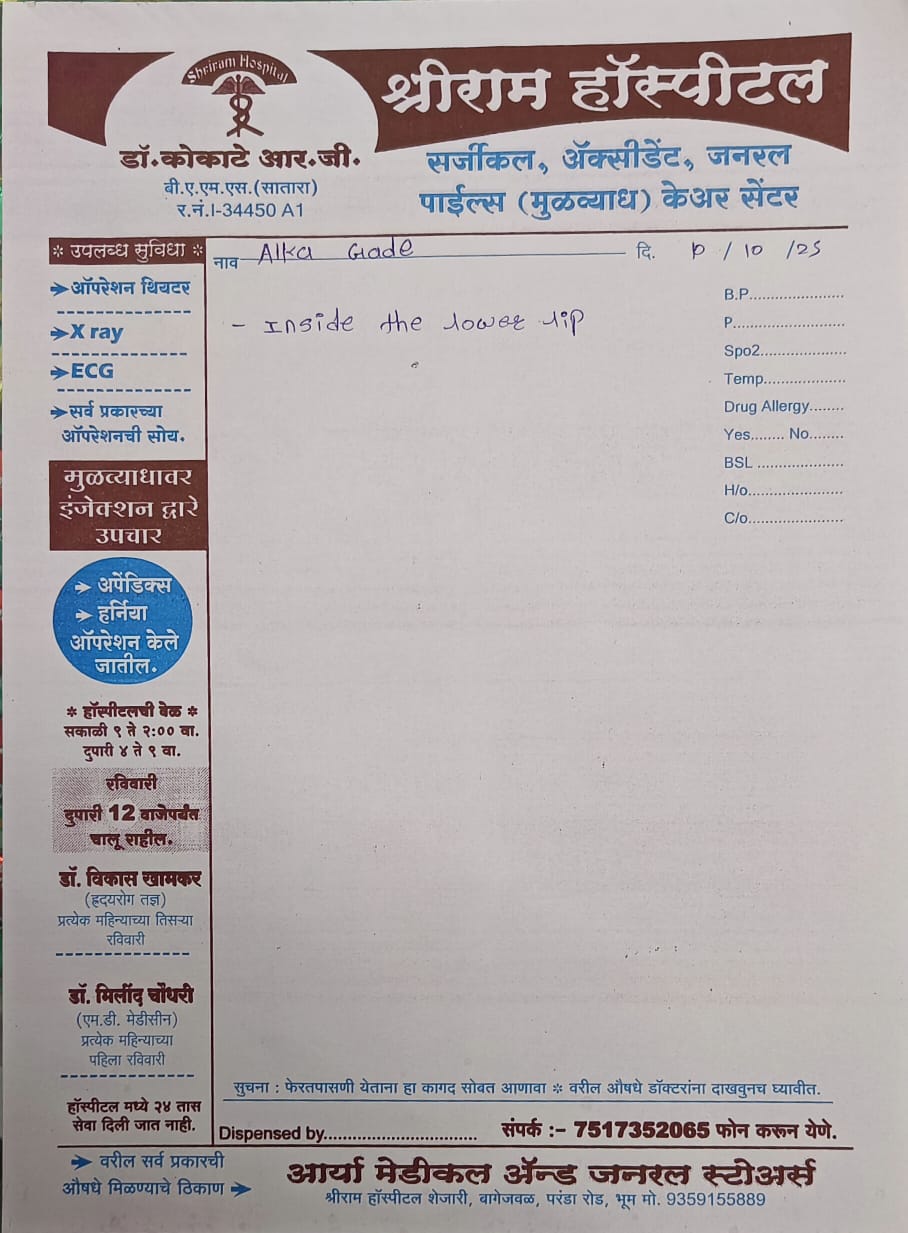 Shriram Hospital
श्रीराम हॉस्पीटल
डॉ.कोकाटे आर.जी.
बी.ए.एम.एस.(सातारा)
र.नं.I-34450 A1
सर्जीकल, ॲक्सीडेंट, जनरल
पाईल्स (मुळव्याध) केअर सेंटर
* उपलब्ध सुविधा *
ऑपरेशन थियटर
X ray
ECG
सर्व प्रकारच्या
ऑपरेशनची सोय.
मुळव्याधावर
इंजेक्शन द्वारे
उपचार
अपेंडिक्स
हर्निया
ऑपरेशन केले
जातील.
* हॉस्पीटलची वेळ *
सकाळी ९ ते २:०० वा.
दुपारी ४ ते ९ वा.
रविवारी
दुपारी 12 वाजेपर्यंत
चालू राहील.
डॉ. विकास खामकर
(ह्रदयरोग तज्ञ)
प्रत्येक महिन्याच्या तिसऱ्या
रविवारी
डॉ. मिलींद चौधरी
(एम.डी. मेडीसीन)
प्रत्येक महिन्याच्या
पहिला रविवारी
हॉस्पीटल मध्ये २४ तास
सेवा दिली जात नाही.
नाव Alka Gade दि. /10 /25
- Inside the lower lip
B.P.....................
P.........................
Spo2...................
Temp..................
Drug Allergy........
Yes........ No........
BSL ...................
H/o.....................
C/o.....................
सुचना : फेरतपासणी येताना हा कागद सोबत आणावा * वरील औषधे डॉक्टरांना दाखवुनच घ्यावीत.
Dispensed by................................. संपर्क :- 7517352065 फोन करून येणे.
वरील सर्व प्रकारची
औषधे मिळण्याचे ठिकाण
आर्या मेडीकल ॲन्ड जनरल स्टोअर्स
श्रीराम हॉस्पीटल शेजारी, बागेजवळ, परंडा रोड, भूम मो. 9359155889